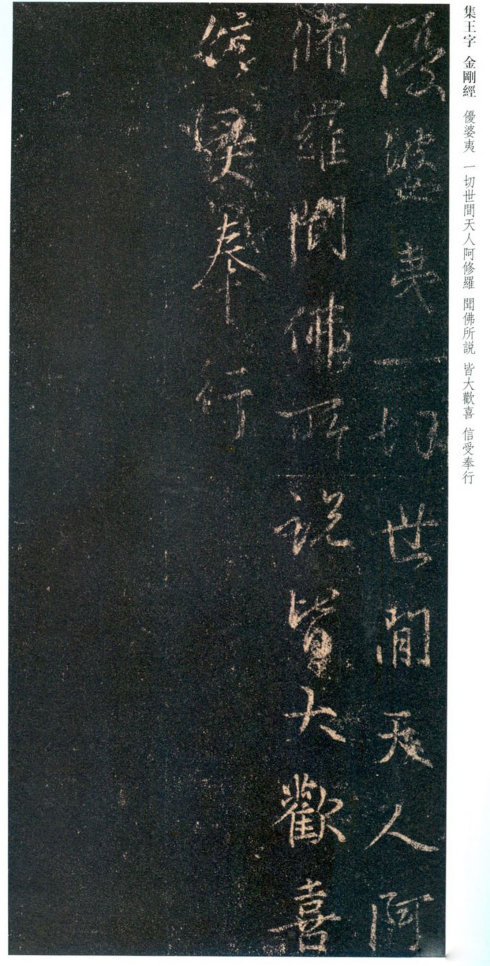 集王字 金剛經 優婆夷 一切世間天人阿修羅 聞佛所説 皆大歡喜 信受奉行
優婆夷一切世間天人阿
脩羅聞佛所説皆大歡喜
信受奉行